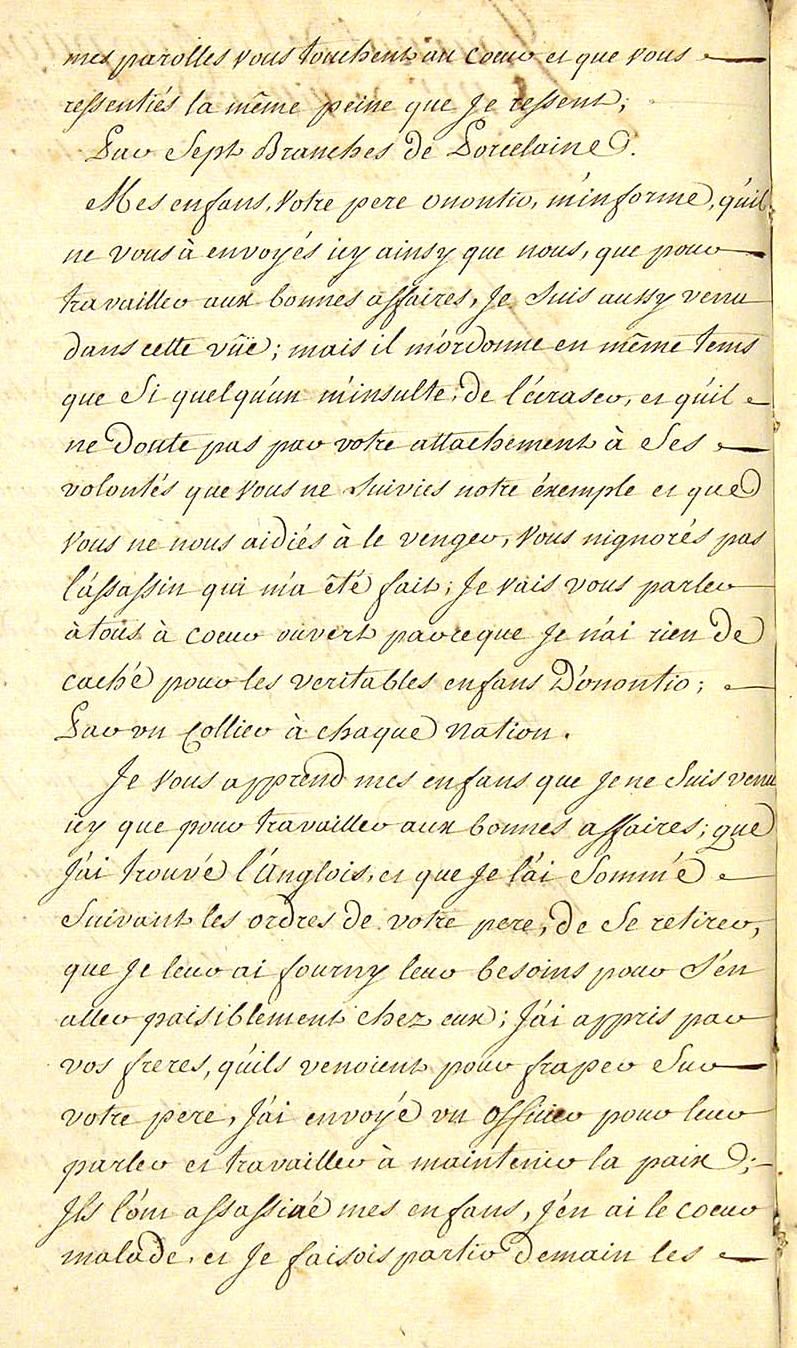 mes parolles vous touchent au coeur et que vous
ressentiés la même peine que Je ressent;
Par Sept Branches de Porcelaine.
Mes enfans, Votre pere Onontio, m'informe, qu'il
ne vous à envoyés icy ainsy que nous, que pour
travailler aux bonnes affaires, Je suis aussy venu
dans cette vûë; mais il m'ordonne en même tems
que Si quelqu'un m'insulte, de l'écraser, et qu'il
ne Doute pas par votre attachement à Ses
volontés que Vous ne suiviés notre éxemple et que
Vous ne nous aidiés à le venger, Vous n'ignorés pas
l'assassin qui m'a êté fait; Je vais vous parler
à tous à coeur ouvert parceque Je n'ai rien de
caché pour les veritables enfans D'onontio;
Par un Collier à chaque Nation.
Je Vous apprend mes enfans que Je ne Suis venu
icy que pour travailler aux bonnes affaires; que
J'ai trouvé l'Anglois, et que Je l'ai Sommé
Suivant les ordres de votre pere, de Se retirer,
que Je leur ai fourny leur besoins pour S'en
aller paisiblement chez eux; J'ai appris par
vos freres, qu'ils venoient pour fraper Sur
votre pere, J'ai envoyé un Officier pour leur
parler et travailler à maintenir la paix;
Ils l'ont assassiné mes enfans, J'en ai le coeur
malade, et Je faisois partir Demain les